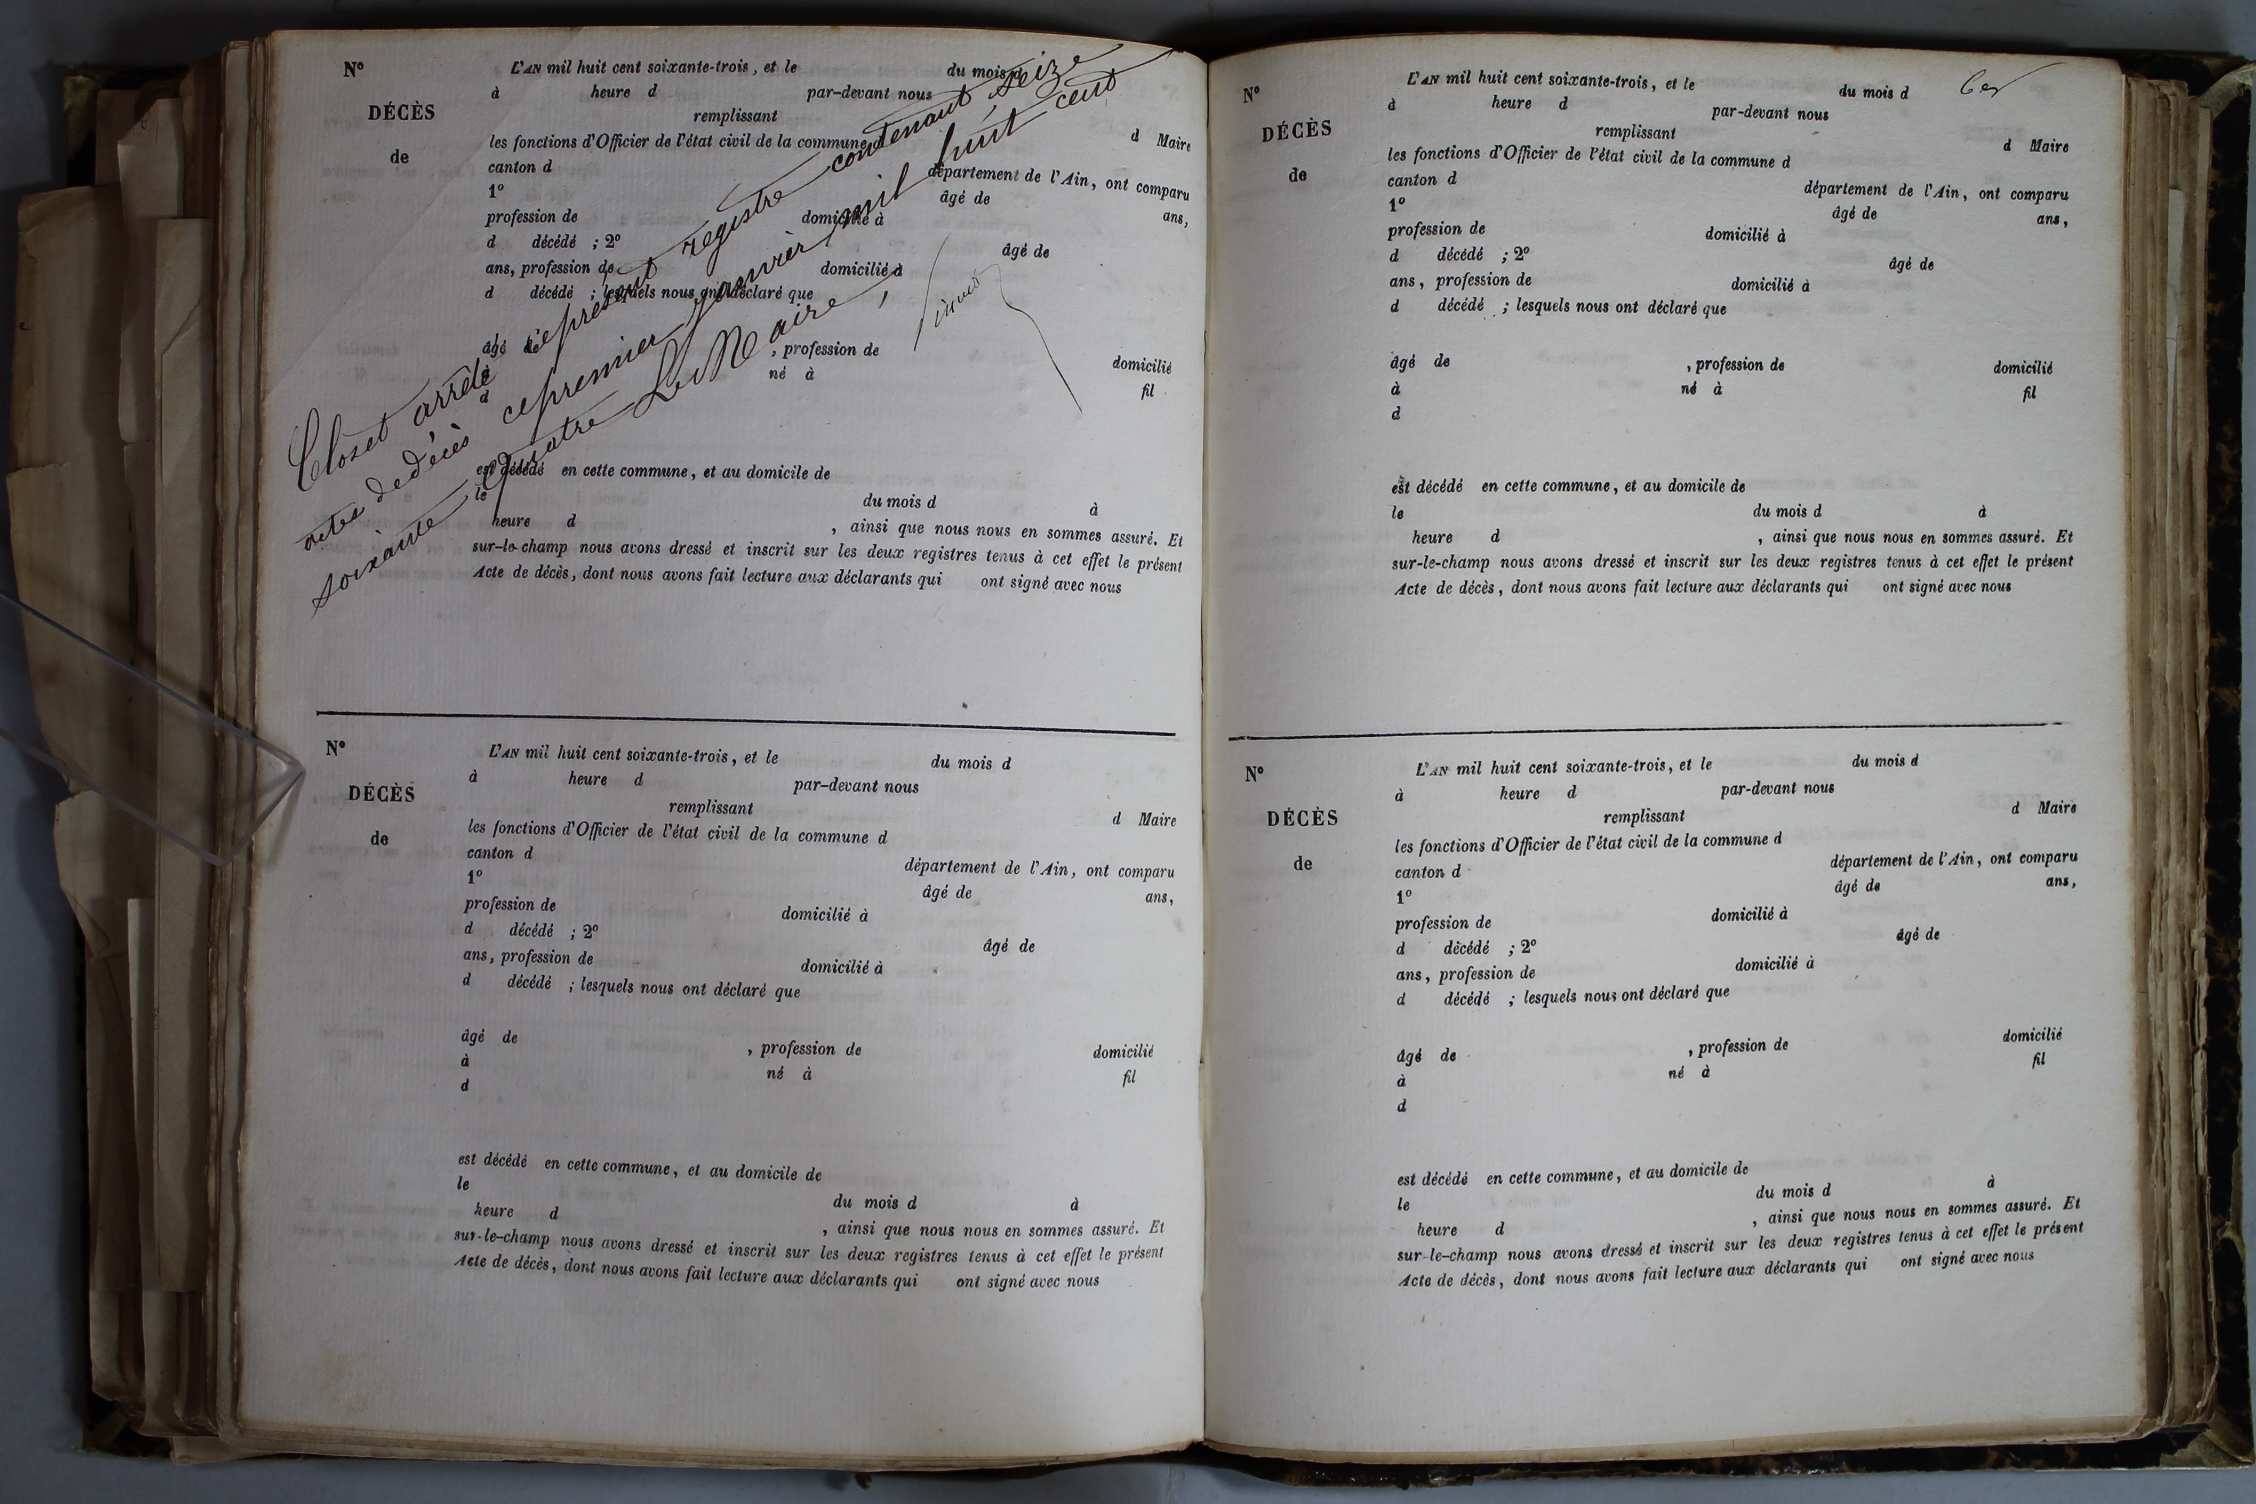 N°
DÉCÈS
de
L'AN mil huit cent soixante-trois, et le du mois d
à heure d par-devant nous
remplissant d Maire
les fonctions d'Officier de l'état civil de la commune d
canton d département de l'Ain, ont comparu
1° âgé de ans,
profession de domicilié à
d décédé ; 2° âgé de
ans, profession de domicilié à
d décédé ; lesquels nous ont déclaré que
âgé de , profession de domicilié
à né à fil
d
est décédé en cette commune, et au domicile de
le du mois d à
heure d , ainsi que nous nous en sommes assuré. Et
sur-le-champ nous avons dressé et inscrit sur les deux registres tenus à cet effet le présent
Acte de décès, dont nous avons fait lecture aux déclarants qui ont signé avec nous
Closet arrêté le présent registre contenant seize
actes de décès ce premier janvier mil huit cent
soixante quatre Le Maire,
N°
DÉCÈS
de
L'AN mil huit cent soixante-trois, et le du mois d
à heure d par-devant nous
remplissant d Maire
les fonctions d'Officier de l'état civil de la commune d
canton d département de l'Ain, ont comparu
1° âgé de ans,
profession de domicilié à
d décédé ; 2° âgé de
ans, profession de domicilié à
d décédé ; lesquels nous ont déclaré que
âgé de , profession de domicilié
à né à fil
d
est décédé en cette commune, et au domicile de
le du mois d à
heure d , ainsi que nous nous en sommes assuré. Et
sur-le-champ nous avons dressé et inscrit sur les deux registres tenus à cet effet le présent
Acte de décès, dont nous avons fait lecture aux déclarants qui ont signé avec nous
N°
DÉCÈS
de
L'AN mil huit cent soixante-trois, et le du mois d
à heure d par-devant nous
remplissant d Maire
les fonctions d'Officier de l'état civil de la commune d
canton d département de l'Ain, ont comparu
1° âgé de ans,
profession de domicilié à
d décédé ; 2° âgé de
ans, profession de domicilié à
d décédé ; lesquels nous ont déclaré que
âgé de , profession de domicilié
à né à fil
d
est décédé en cette commune, et au domicile de
le du mois d à
heure d , ainsi que nous nous en sommes assuré. Et
sur-le-champ nous avons dressé et inscrit sur les deux registres tenus à cet effet le présent
Acte de décès, dont nous avons fait lecture aux déclarants qui ont signé avec nous
N°
DÉCÈS
de
L'AN mil huit cent soixante-trois, et le du mois d
à heure d par-devant nous
remplissant d Maire
les fonctions d'Officier de l'état civil de la commune d
canton d département de l'Ain, ont comparu
1° âgé de ans,
profession de domicilié à
d décédé ; 2° âgé de
ans, profession de domicilié à
d décédé ; lesquels nous ont déclaré que
âgé de , profession de domicilié
à né à fil
d
est décédé en cette commune, et au domicile de
le du mois d à
heure d , ainsi que nous nous en sommes assuré. Et
sur-le-champ nous avons dressé et inscrit sur les deux registres tenus à cet effet le présent
Acte de décès, dont nous avons fait lecture aux déclarants qui ont signé avec nous